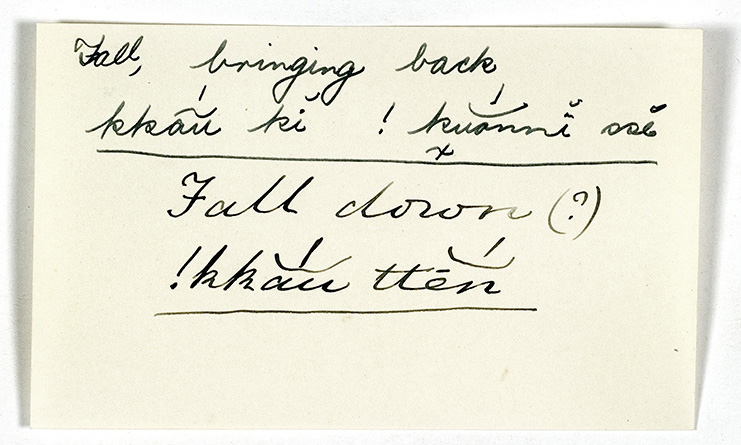 Fall, bringing back
kkāŭ́ kĭ ! kuŏ́nnĭ ssĕ
Fall down (?)
!kkăŭ́ ttĕ́n